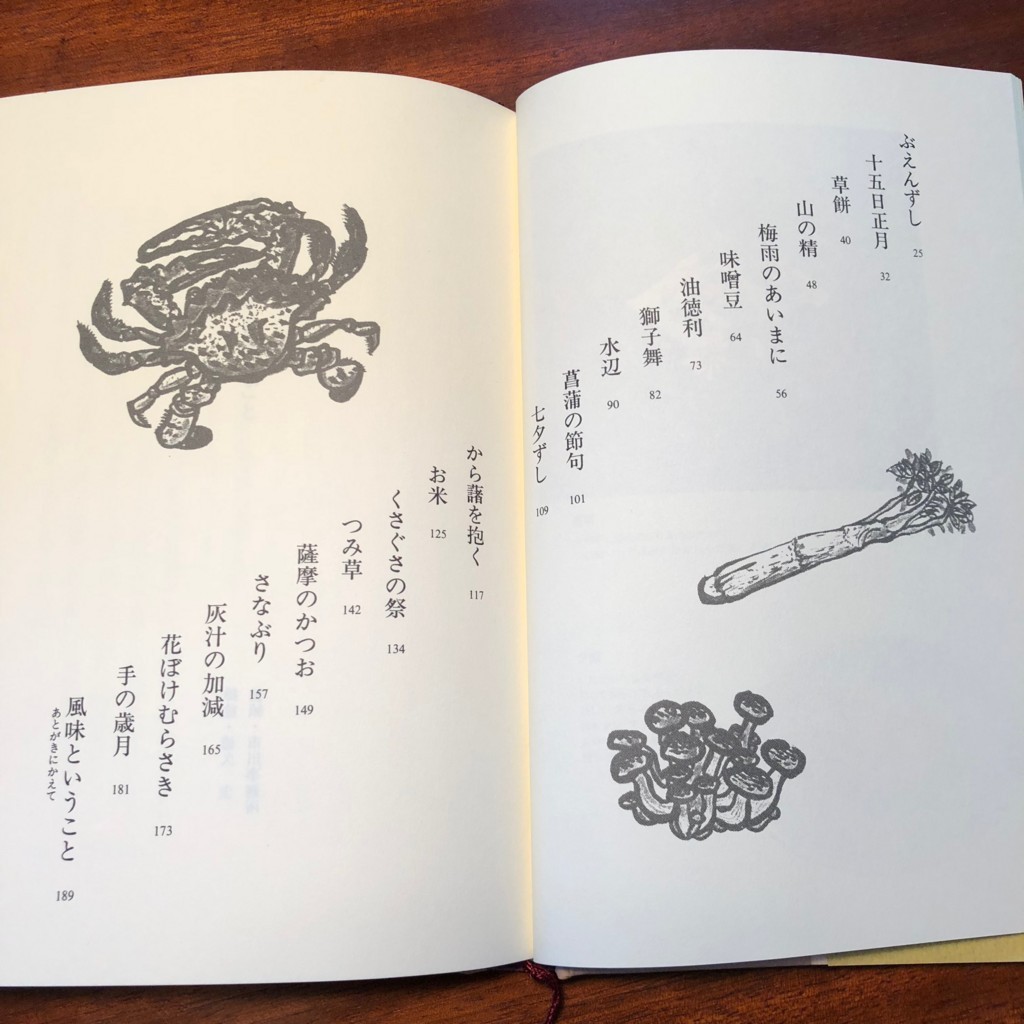 ぶえんずし 25
十五日正月 32
草餅 40
山の精 48
梅雨のあいまに 56
味噌豆 64
油徳利 73
獅子舞 82
水辺 90
菖蒲の節句 101
七夕ずし 109
から藷を抱く 117
お米 125
くさぐさの祭 134
つみ草 142
薩摩のかつお 149
さなぶり 157
灰汁の加減 165
花ぼけむらさき 173
手の歳月 181
風味ということ 189
あとがきにかえて